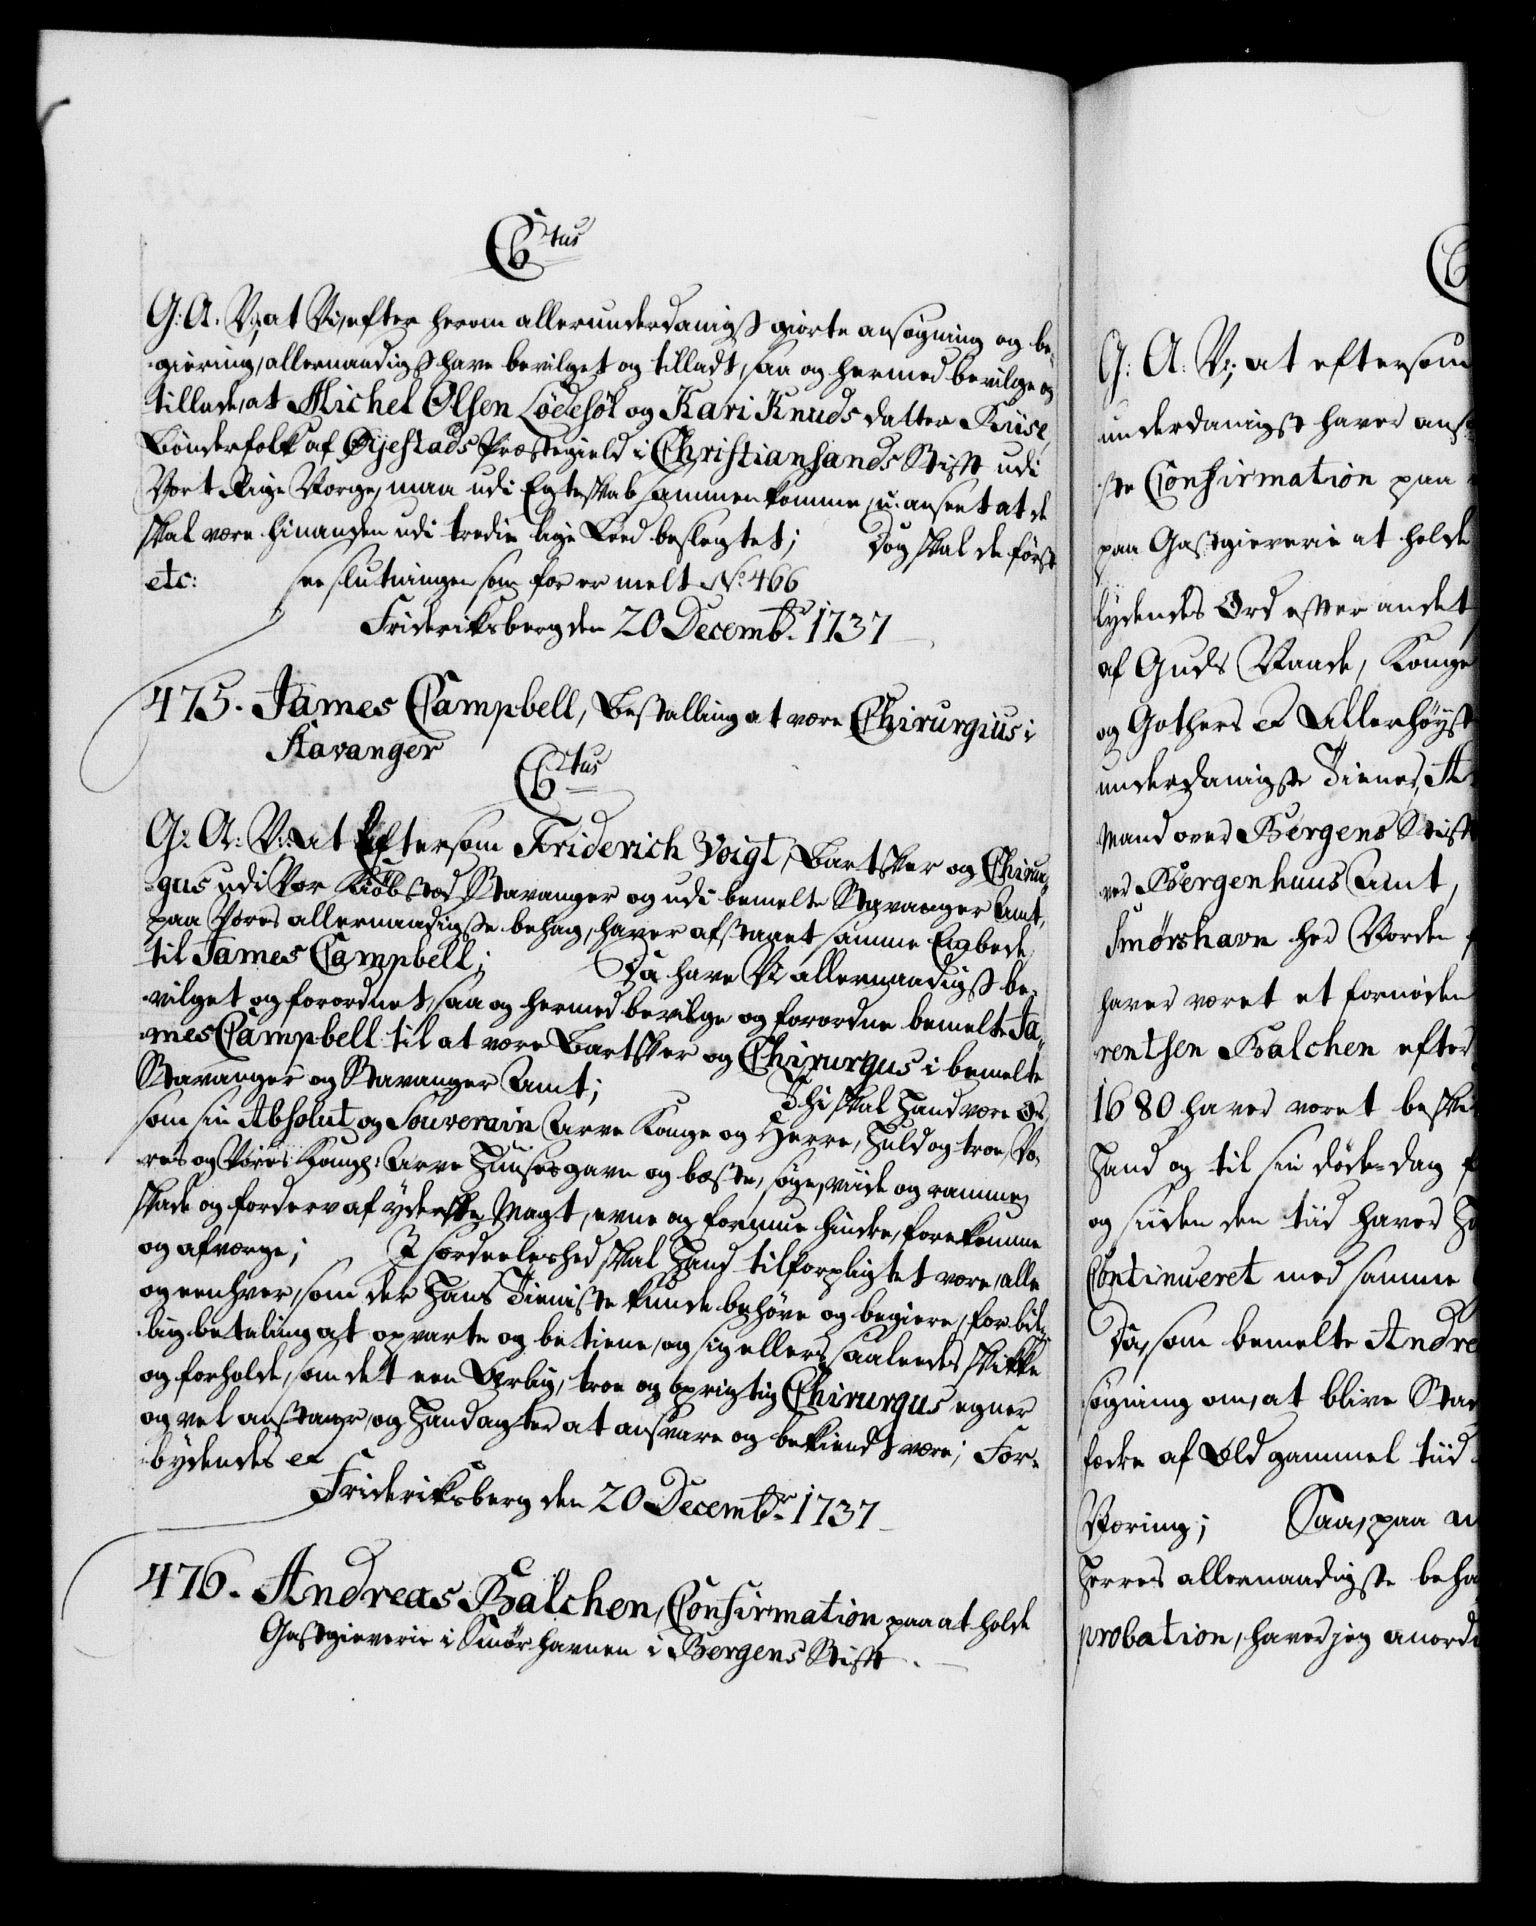 C6tus
G: A: V:, at Vi, efter herom allerunderdanigst giorte ansøgning og be-
giæring, allernaadigst have bevilget og tilladt, saa og hermed bevilge og
tillade, at Michel Olsen Lödesöl og Kari Knuds datter Kuise,
Bønderfolk af Øyestads Præstegield i Christiansands Stift udi
Vort Rige Norge, maa udi Egteskab sammenkomme, u-anseet at de
skal være hinanden udi tredie lige Leed beslegtet; Dog skal de først
etc: see slutningen som for er melt No 466
Frideriksberg den 20 Decembr. 1737
475. James Campbell, Bestalling at være Chirurgius i
Stavanger
C6tus
G: A: V: at Eftersom Friderich Voigt, Bartsker og Chirur-
gus udi Vor Kiøbsted Stavanger og udi bemelte Stavanger Amt,
paa Vores allernaadigste behag, haver afstaaet samme Embede
til James Campbell; Da have Vi allernaadigst be-
vilget og forordnet, saa og hermed bevilge og forordne bemelte Ja-
mes Campbell til at være Bartsker og Chirurgus i bemelte
Stavanger og Stavanger Amt; Thi skal Hand være Os,
som sin Absolut og Souverain Arve Konge og Herre, Huld og troe, Vo-
res og Vores Kongl: Arve Huuses gavn og bæste, søge, viide og ramme,
skade og forderv af yderste Magt, evne og formue hindre, forekomme
og afværge; I særdeeleshed skal Hand tilforpligtet være, alle
og eenhver, som der Hans Tieniste kunde behøve og begiere, for bil-
lig betaling at opvarte og betiene, og sig ellers saaleedes skikke
og forholde, som det een Ærlig, troe og oprigtig Chirurgus egner
og vel anstaaer, og Hand agter at ansvare og bekiendt være; For-
bydendes etc
Frideriksberg den 20 Decembr. 1737
476. Andreas Balchen, Confirmation paa at holde
Gastgieverie i Smørhavnen i Bergens Stift.
C6
G: A: V:, at eftersom
underdanigst haver ansø
ste Confirmation paa
paa Gastgieverie at holde
lydendes Ord efter andet
af Guds Naade, Konge
og Gothers etc Allerhøyst
underdanigste Tiener, A
Mand over Bergens Stift
ved Bergenhuus Amt,
Smørshavn her Norden f
haver været et fornøden
rentsen Balchen efter
1680 haver været beskik
Hand og til sin døde-dag f
og siiden den tiid haver Ha
Continueret med samme
Da, som bemelte Andre
søgning om, at blive Sta
fædre af Old gammel tiid
Næring; Saa, paa m
Herres allernaadigste beha
probation, haver jeg anord